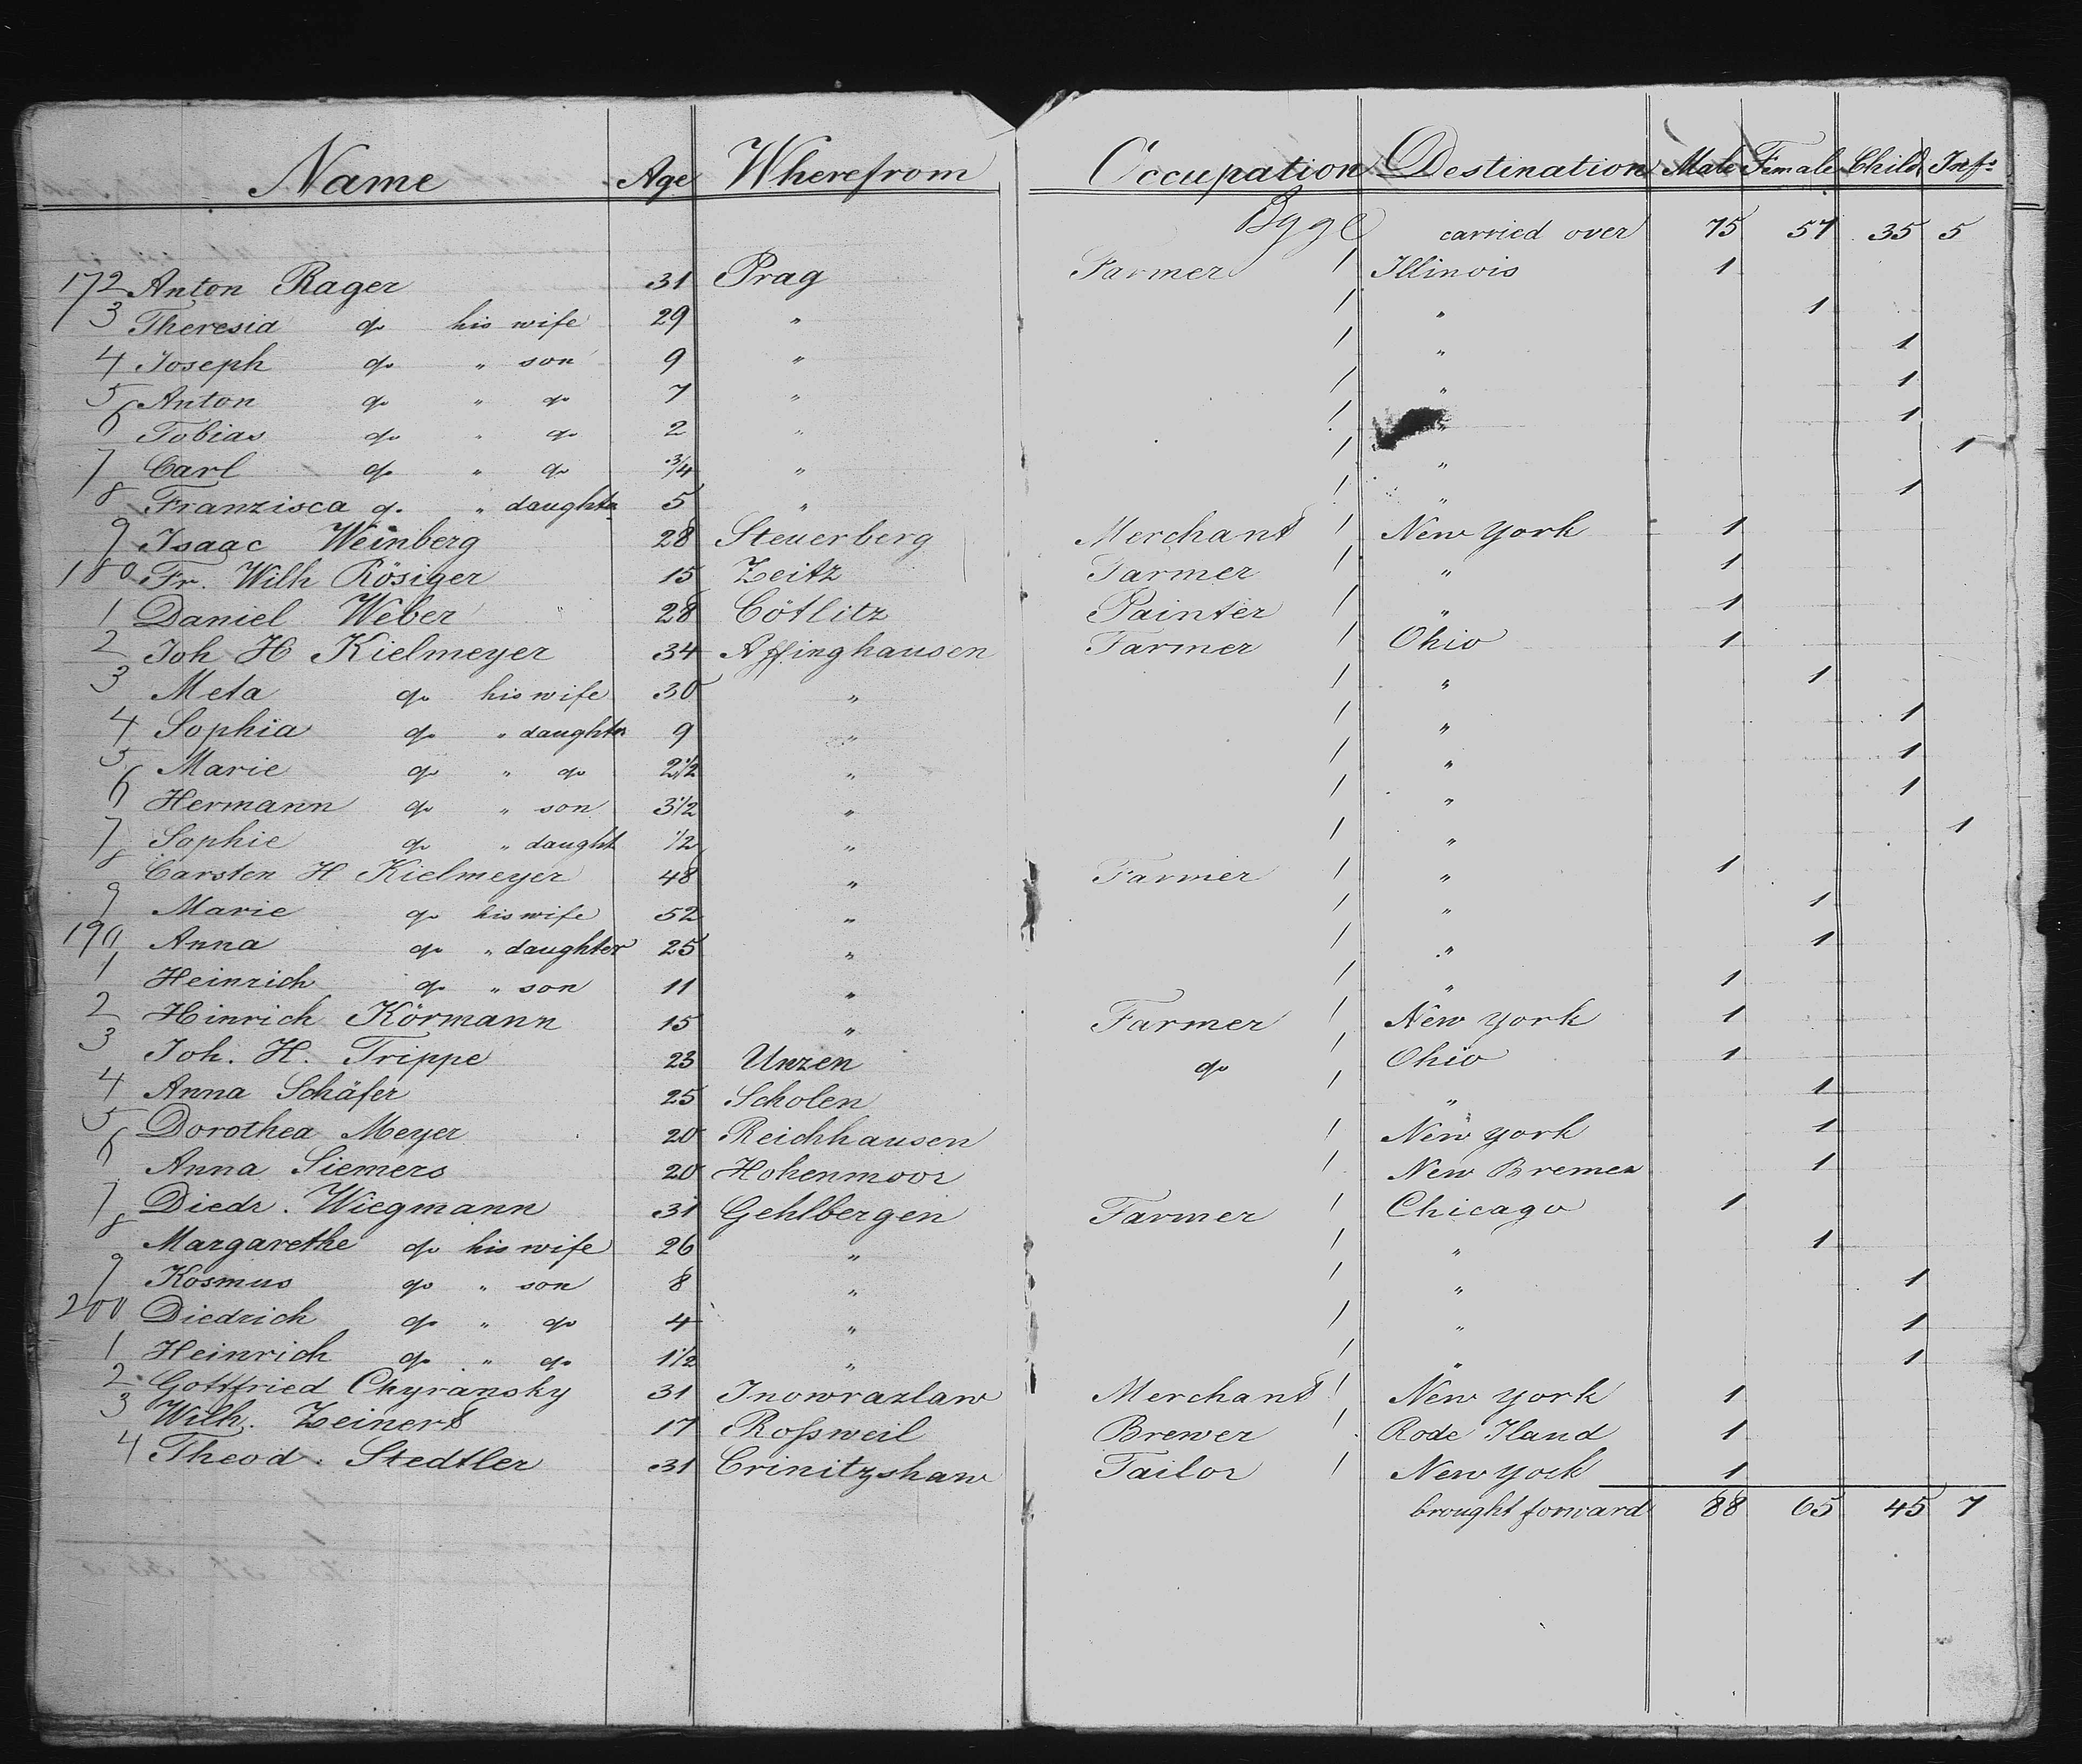 Name Age Wherefrom Occupation Destination Male Female Child Inf:
carried over 75 57 35 5
172 Anton Rager 31 Prag Farmer / Illinois 1
3 Theresia do his wife 29 " / " 1
4 Joseph do " son 9 " / " 1
5 Anton do " do 7 " / " 1
6 Tobias do " do 2 " / " 1
7 Carl do " do 3/4 " / " 1
8 Franzisca do " daughtr 5 " / " 1
9 Isaac Weinberg 28 Steuerberg Merchant / New York 1
180 Fr. Wilh Rösiger 15 Zeitz Farmer / " 1
1 Daniel Weber 28 Cötlitz Painter / " 1
2 Joh H Kielmeyer 34 Affinghausen Farmer / Ohio 1
3 Meta do his wife 30 " / " 1
4 Sophia do " daughtr 9 " / " 1
5 Marie do " do 2 1/2 " / " 1
6 Hermann do " son 3 1/2 " / " 1
7 Sophie do " daught 1/2 " / " 1
8 Carsten H Kielmeyer 48 " Farmer / " 1
9 Marie do his wife 52 " / " 1
190 Anna do " daughter 25 " / " 1
1 Heinrich do " son 11 " / " 1
2 Hinrich Körmann 15 " Farmer / New York 1
3 Joh. H. Trippe 23 Unzen do / Ohio 1
4 Anna Schäfer 25 Scholen / " 1
5 Dorothea Meyer 20 Reichhausen / New York 1
6 Anna Siemers 20 Hohenmoor / New Bremen 1
7 Diedr. Wiegmann 31 Gehlbergen Farmer / Chicago 1
8 Margarethe do his wife 26 " / " 1
9 Kosmus do " son 8 " / " 1
200 Diedrich do " do 4 " / " 1
1 Heinrich do " do 1 1/2 " / " 1
2 Gottfried Chyransky 31 Inowrazlaw Merchant / New York 1
3 Wilh. Zeinert 17 Roßweil Brewer / Rode Iland 1
4 Theod. Stedtler 31 Crinitzshaw Tailor / New York 1
brought forward 88 65 45 7